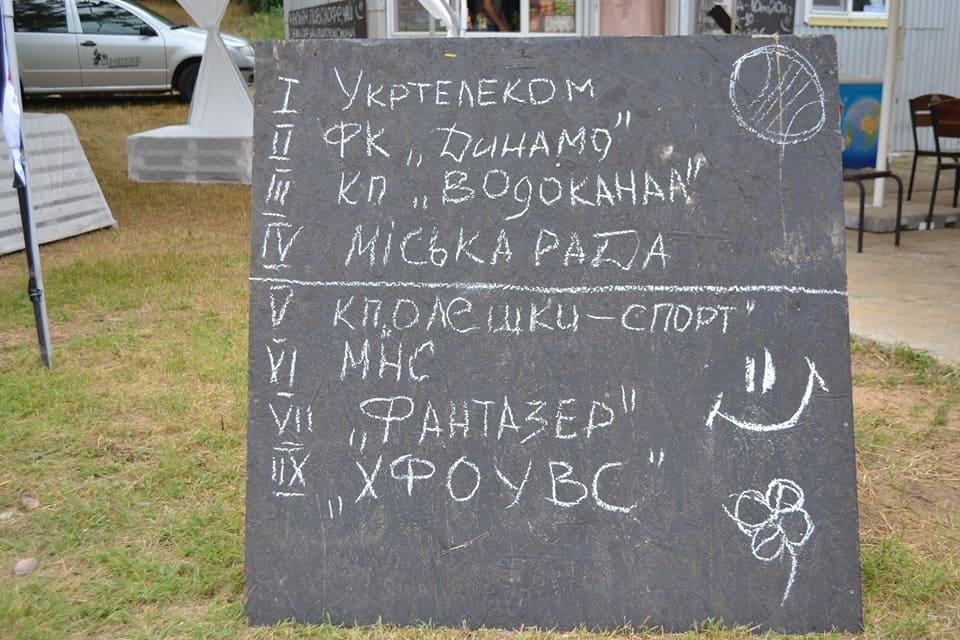 I Укртелеком
II ФК „Динамо"
III КП „Водоканал"
IV МІСЬКА РАДА
V КП „Олешки-спорт"
VI МНС
VII „ФАНТАЗЕР"
IIX „ХФОУВС"